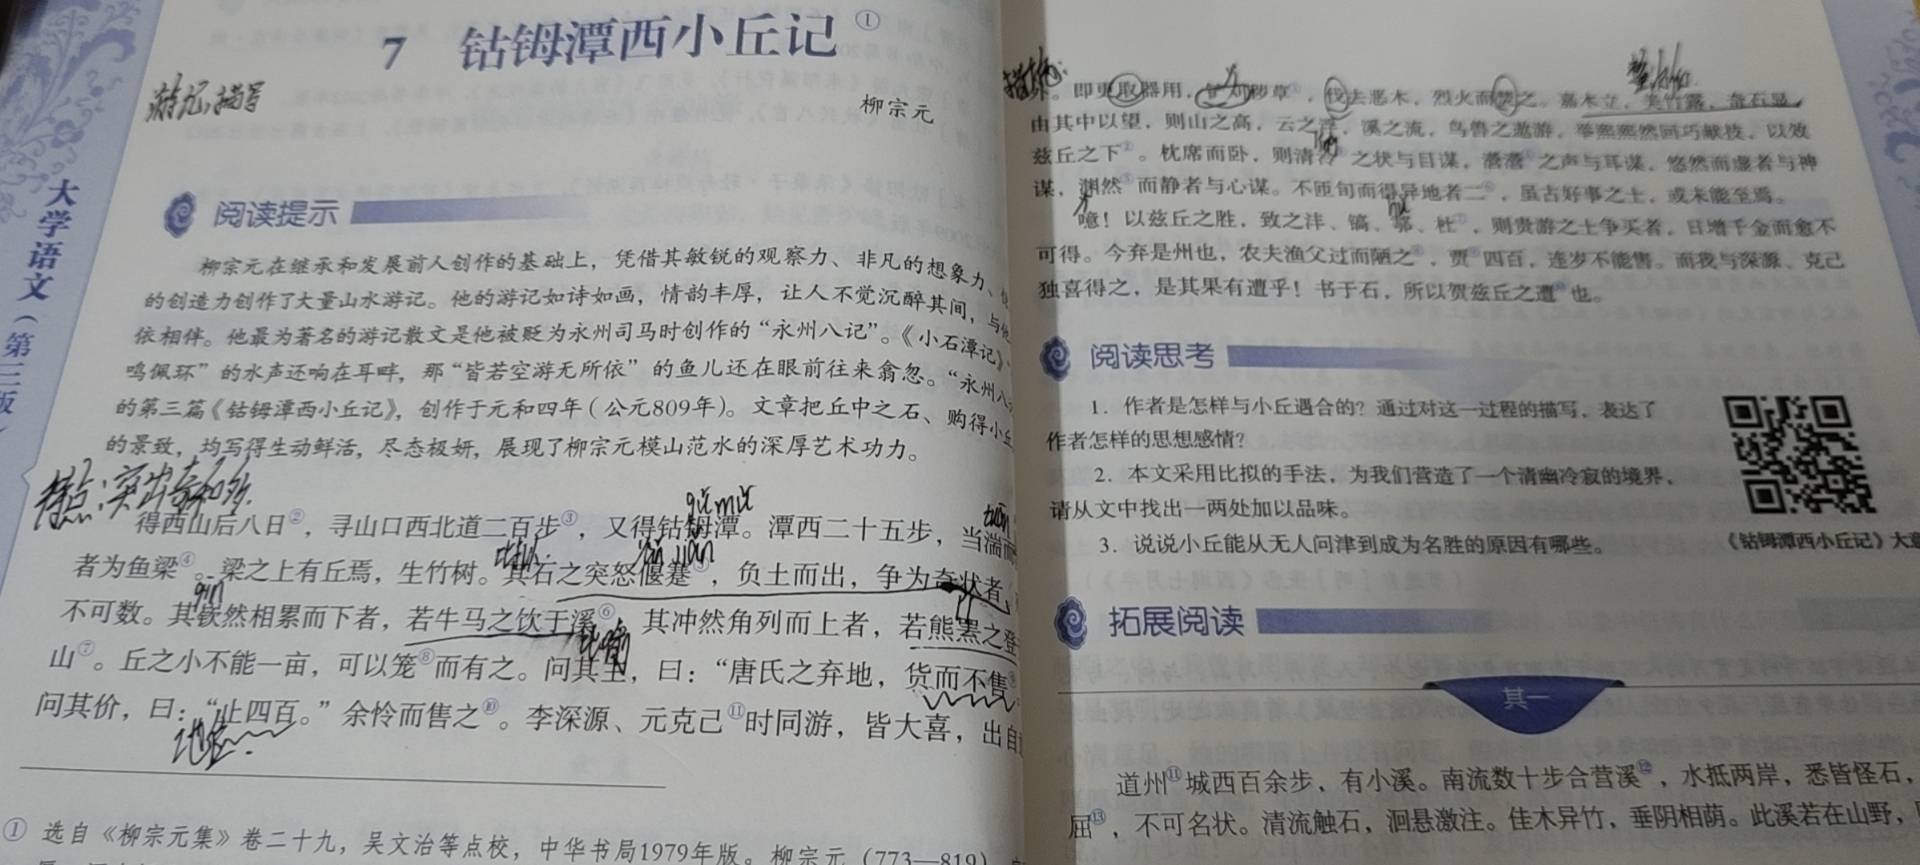 7 钴鉧潭西小丘记①
游记,描写
柳宗元
大学语文（第三版）
阅读提示
柳宗元在继承和发展前人创作的基础上，凭借其敏锐的观察力、非凡的想象力、
的创造力创作了大量山水游记。他的游记如诗如画，情韵丰厚，让人不觉沉醉其间，与他
依相伴。他最为著名的游记散文是他被贬为永州司马时创作的“永州八记”。《小石潭记》
鸣佩环”的水声还响在耳畔，那“皆若空游无所依”的鱼儿还在眼前往来翕忽。“永州八
的第三篇《钴鉧潭西小丘记》，创作于元和四年（公元809年）。文章把丘中之石、购得小丘
的景致，均写得生动鲜活，尽态极妍，展现了柳宗元模山范水的深厚艺术功力。
特点:突出奇和
gǔ mǔ
得西山后八日②，寻山口西北道二百步③，又得钴鉧潭。潭西二十五步，当湍而
yǎn jiǎn
者为鱼梁④。梁之上有丘焉，生竹树。其石之突怒偃蹇⑤，负土而出，争为奇状者，
qīn
不可数。其嵚然相累而下者，若牛马之饮于溪⑥；其冲然角列而上者，若熊罴之登
山⑦。丘之小不能一亩，可以笼⑧而有之。问其主，曰：“唐氏之弃地，货而不售⑨
问其价，曰：“止四百。”余怜而售之⑩。李深源、元克己⑪时同游，皆大喜，出自
① 选自《柳宗元集》卷二十九，吴文治等点校，中华书局1979年版。柳宗元（773—819）
外。即更取器用，铲刈秽草，伐去恶木，烈火而焚之。嘉木立，美竹露，奇石显。
由其中以望，则山之高，云之浮，溪之流，鸟兽之遨游，举熙熙然回巧献技，以效
兹丘之下②。枕席而卧，则清泠之状与目谋，瀯瀯之声与耳谋，悠然而虚者与神
谋，渊然而静者与心谋。不匝旬而得异地者二，虽古好事之士，或未能至焉。
噫！以兹丘之胜，致之沣、镐、鄠、杜⑦，则贵游之士争买者，日增千金而愈不
可得。今弃是州也，农夫渔父过而陋之⑧，贾⑨四百，连岁不能售。而我与深源、克己
独喜得之，是其果有遭乎！书于石，所以贺兹丘之遭⑩也。
阅读思考
1．作者是怎样与小丘遇合的？通过对这一过程的描写，表达了
作者怎样的思想感情？
2．本文采用比拟的手法，为我们营造了一个清幽冷寂的境界，
请从文中找出一两处加以品味。
3．说说小丘能从无人问津到成为名胜的原因有哪些。
《钴鉧潭西小丘记》大意
拓展阅读
其一
道州⑪城西百余步，有小溪。南流数十步合营溪⑫，水抵两岸，悉皆怪石，
屈⑬，不可名状。清流触石，洄悬激注。佳木异竹，垂阴相荫。此溪若在山野，